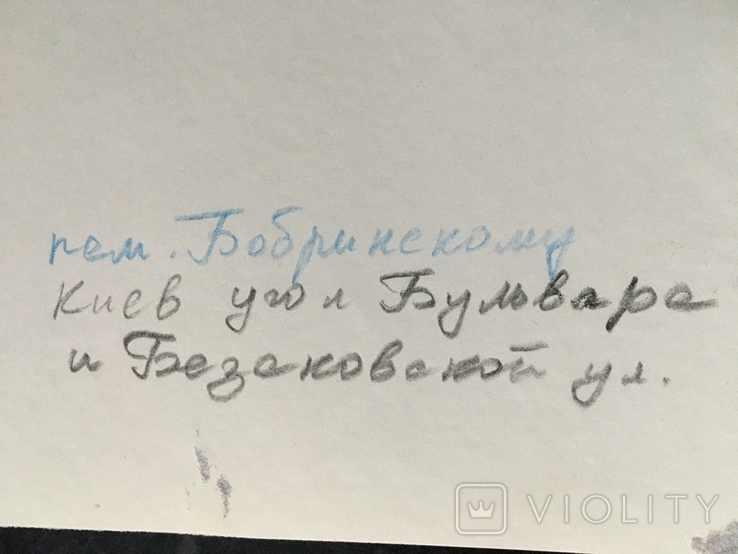 пам. Бобринскому
Киев угол Бульвара
и Безаковской ул.
VIOLITY